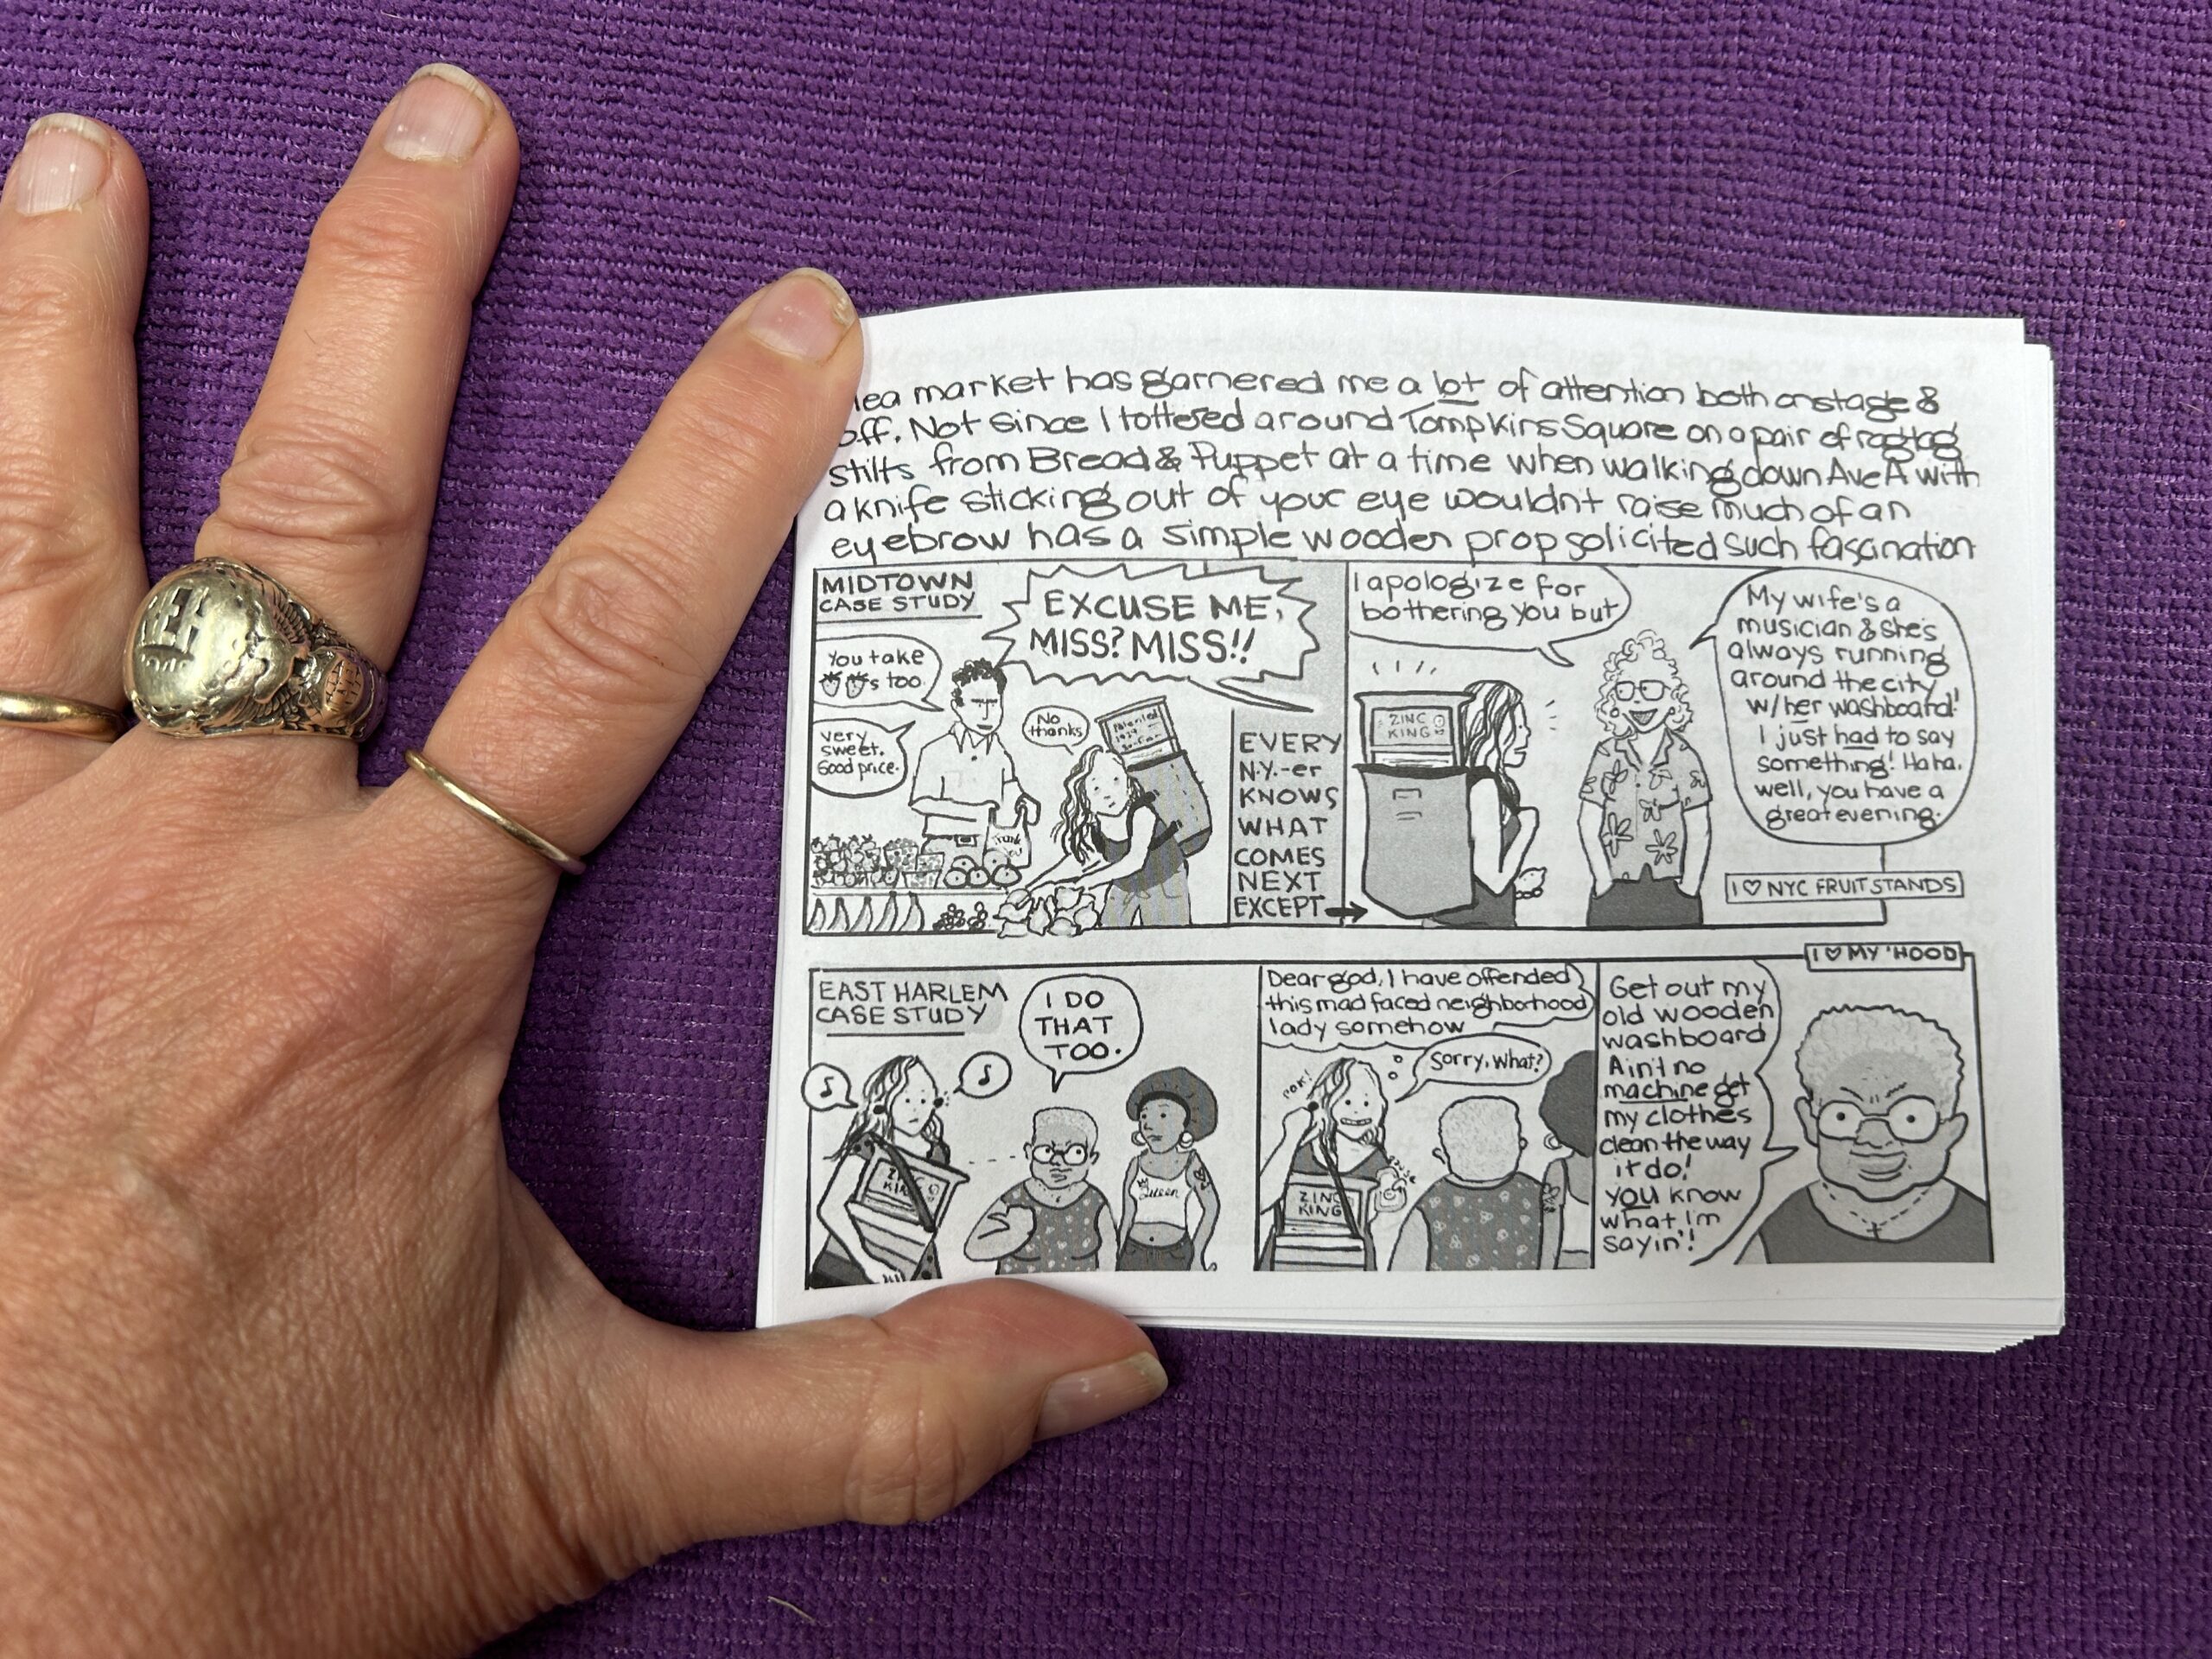 lea market has garnered me a lot of attention both onstage &
off. Not since I tottered around Tompkins Square on a pair of ragtag
stilts from Bread & Puppet at a time when walking down Ave A with
a knife sticking out of your eye wouldn't raise much of an
eyebrow has a simple wooden prop solicited such fascination
MIDTOWN
CASE STUDY
EXCUSE ME,
MISS? MISS!!
You take
s too.
very
sweet.
Good price.
No
thanks
Patented
Thank
You
EVERY
N.Y.-er
KNOWS
WHAT
COMES
NEXT
EXCEPT
I apologize for
bothering you but
ZINC
KING
My wife's a
musician & she's
always running
around the city
w/her washboard!
I just had to say
something! Haha.
well, you have a
great evening.
I ♡ NYC FRUIT STANDS
EAST HARLEM
CASE STUDY
I DO
THAT
TOO.
ZINC
KING
Queen
Dear god, I have offended
this mad faced neighborhood
lady somehow
Sorry, what?
POK!
ZINC
KING
I ♡ MY 'HOOD
Get out my
old wooden
washboard
Ain't no
machine get
my clothes
clean the way
it do!
you know
what I'm
sayin'!